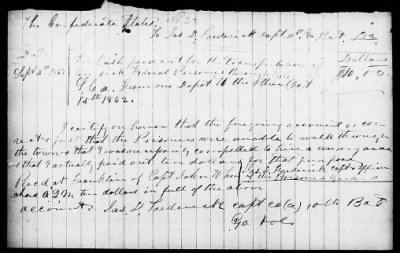 The Confederate States,
To Jas D. Frederick capt 10 Ga Batt. Dr
Dollars
Sept 4th 1862
To Cash paid out for the transportation of
sick Federal Prisoners through
S. Ca. From one Depot to the other Oct
14th 1862.
$10.00
I certify on honor that the foregoing account is cor
rect & just that the Prisoners were unable to walk through
the town & that I was compelled to hire a conveyance
& that I actually paid out ten dollars for that purpose
Jas D Frederick capt & officer
of the Prisoners Guard
Recd at Franklin of Capt John W
A Q M ten dollars in full of the above
account. Jas. D. Frederick capt co (a) 10th Bat
Ga Vols